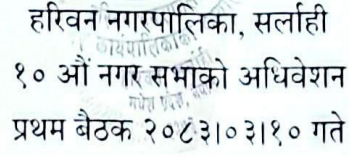 हरिवन नगरपालिका, सर्लाही
कार्यपालिकाको
१० औं नगर सभाको अधिवेशन
प्रथम बैठक २०८३।०३।१० गते